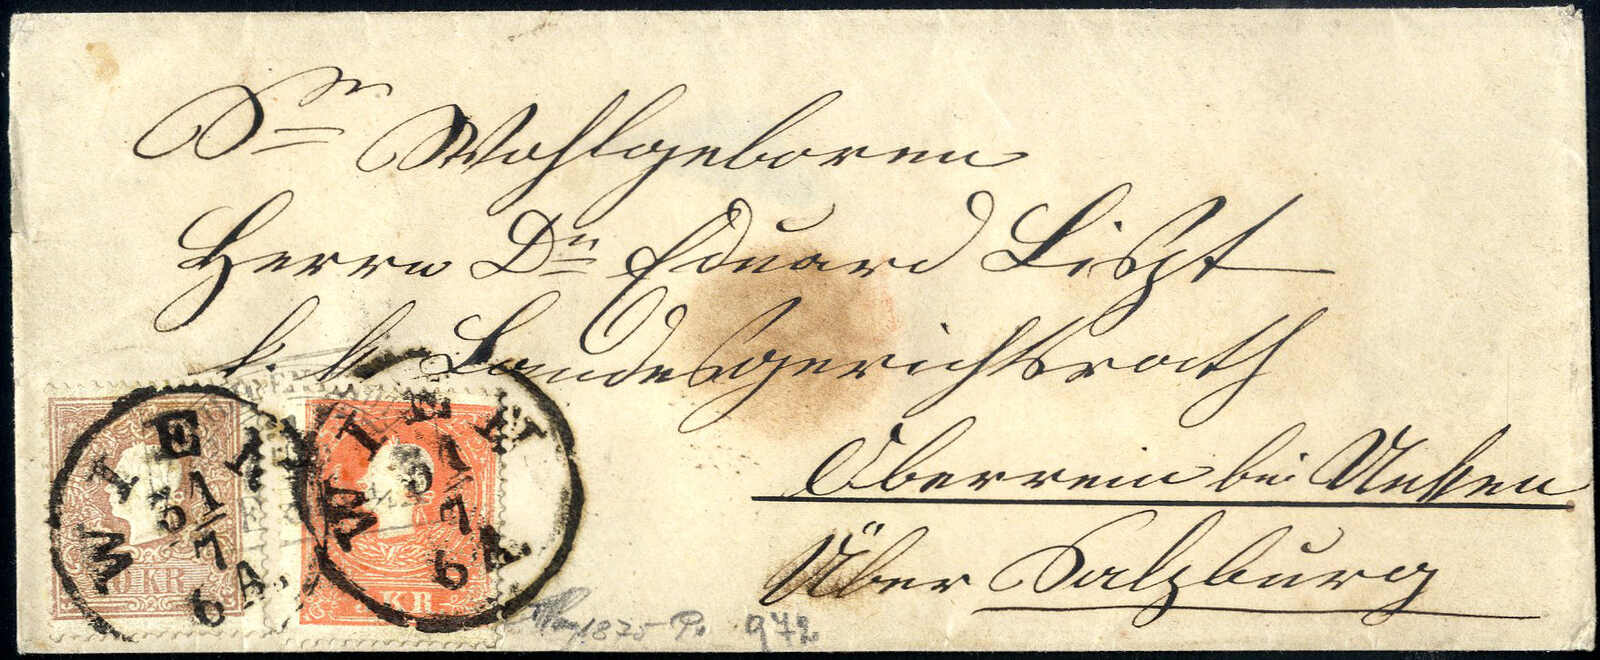 Sr Wohlgeboren
Herrn Dr Eduard Liszt
k. k. Landesgerichtsrath
Oberrein bei
Über Salzburg
WIEN
31/7
6 A.
WIEN
31/7
6 A.
10 KR
5 KR
1875 P. 972